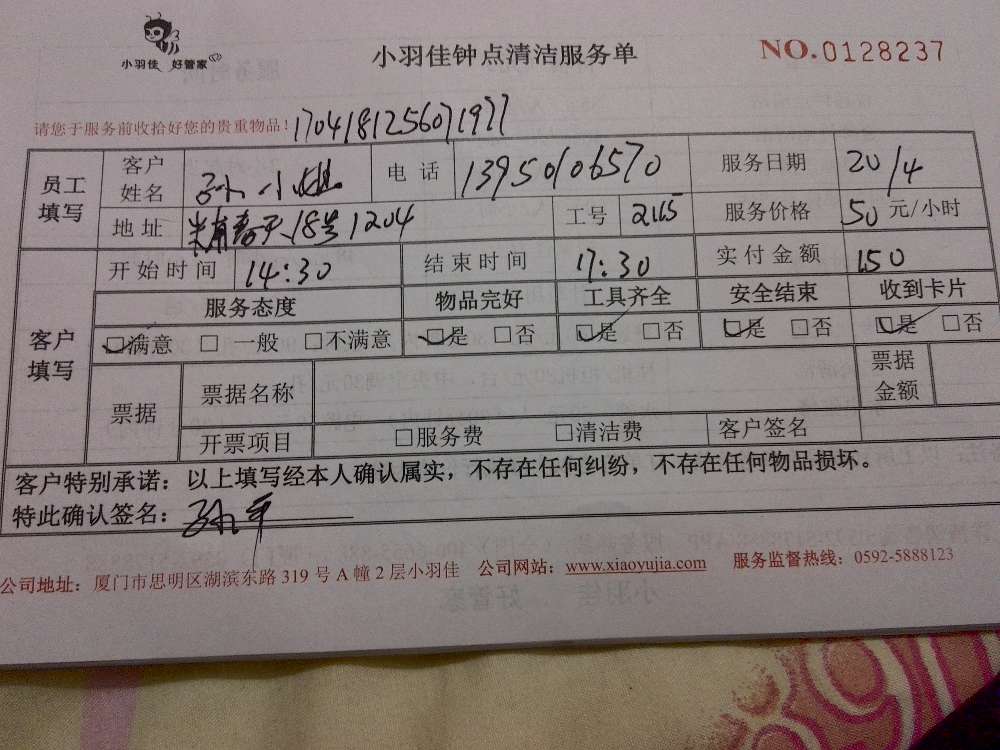 小羽佳 好管家
小羽佳钟点清洁服务单
NO.0128237
请您于服务前收拾好您的贵重物品!
员工填写
客户姓名 孙小姐 电话 13950106570 服务日期 20/4
地址 18号1204 工号 服务价格 50元/小时
客户填写
开始时间 14:30 结束时间 17:30 实付金额 150
服务态度 物品完好 工具齐全 安全结束 收到卡片
☑满意 □一般 □不满意 ☑是 □否 ☑是 □否 ☑是 □否 ☑是 □否
票据 票据名称 票据金额
开票项目 □服务费 □清洁费 客户签名
客户特别承诺:以上填写经本人确认属实,不存在任何纠纷,不存在任何物品损坏。
特此确认签名:
公司地址:厦门市思明区湖滨东路319号A幢2层小羽佳 公司网站:www.xiaoyujia.com 服务监督热线:0592-5888123